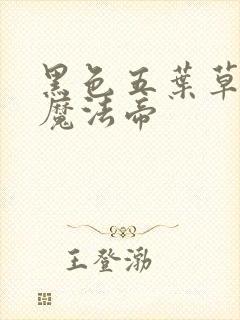 黑色五葉草
魔法帝
王登渤